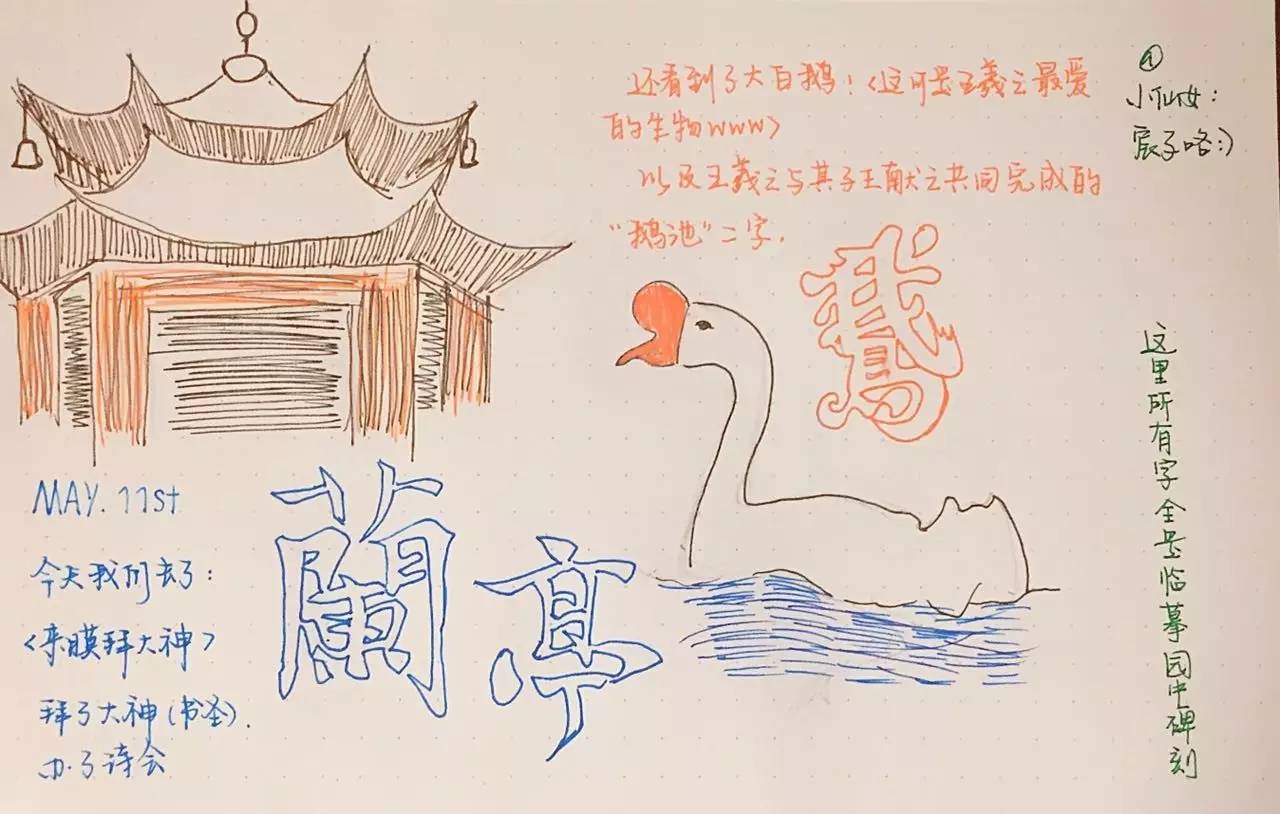 还看到了大白鹅！<这可是王羲之最爱
的生物www>
以及王羲之与其子王献之共同完成的
“鹅池”二字.
鵞
①
小仙女：
宸子咯:)
这里所有字全是临摹园中碑刻
MAY.11st
今天我们去了：
<来膜拜大神>
拜了大神(书圣).
办了诗会
蘭亭